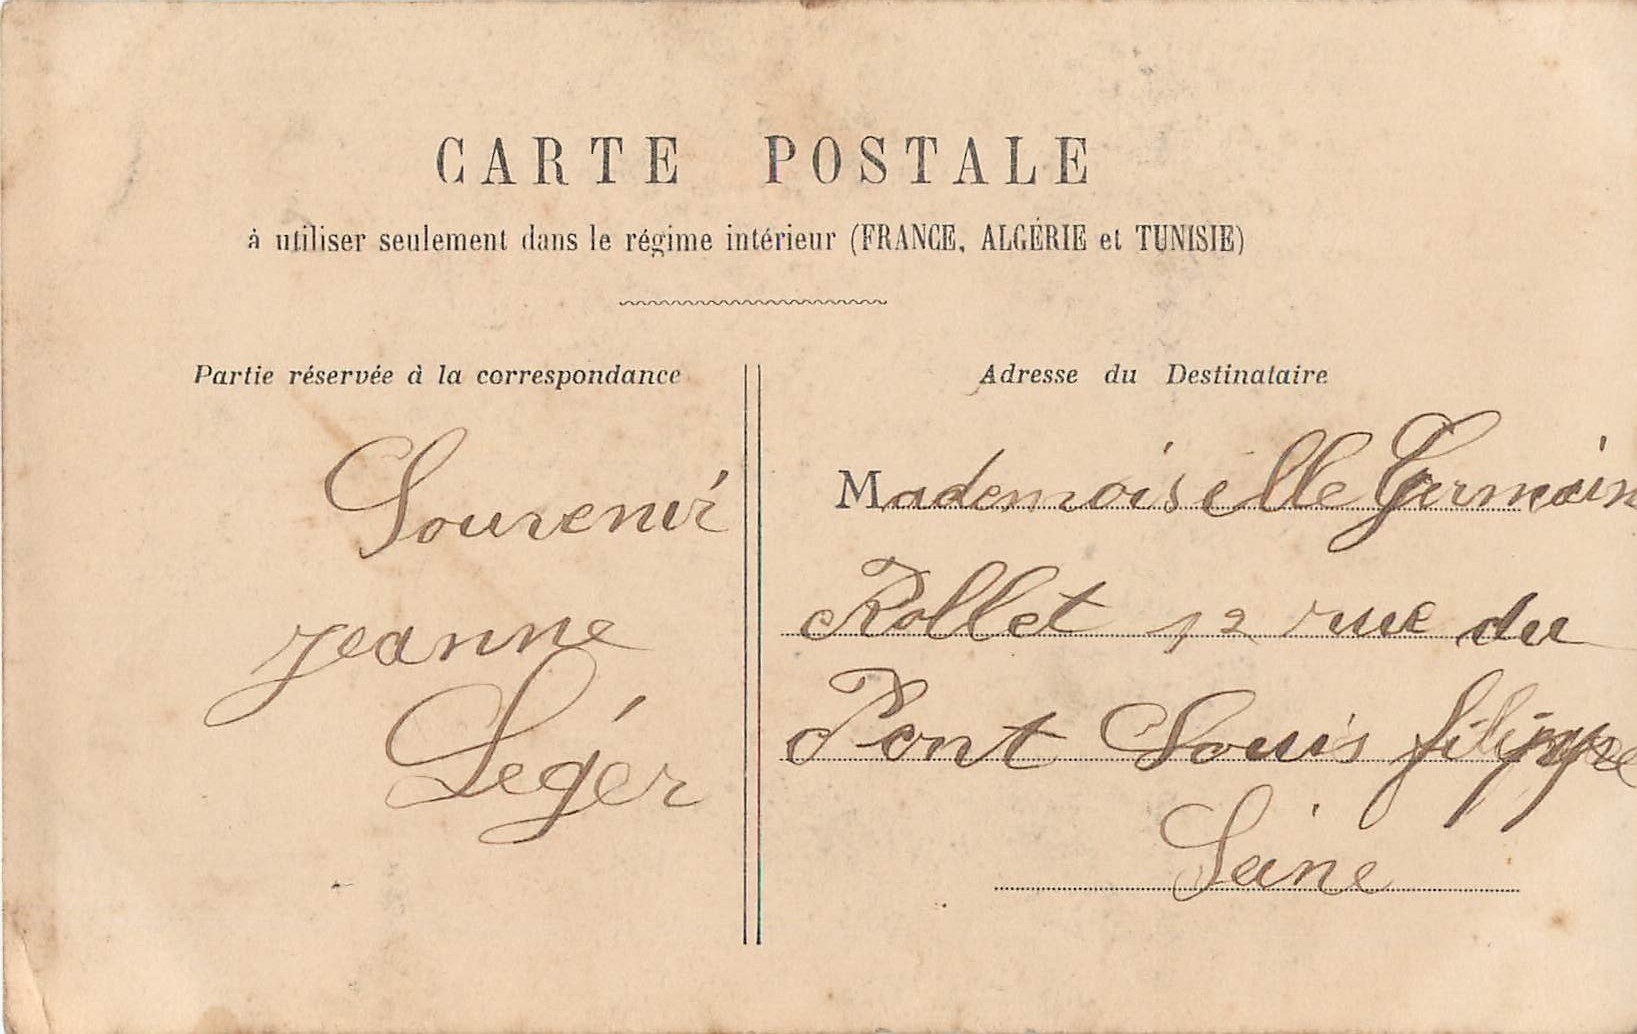 CARTE POSTALE
à utiliser seulement dans le régime intérieur (FRANCE, ALGÉRIE et TUNISIE)
Partie réservée à la correspondance
Souvenir
jeanne
Léger
Adresse du Destinataire
Mademoiselle Germain
Rollet 12 rue du
Pont Louis filippe
Seine